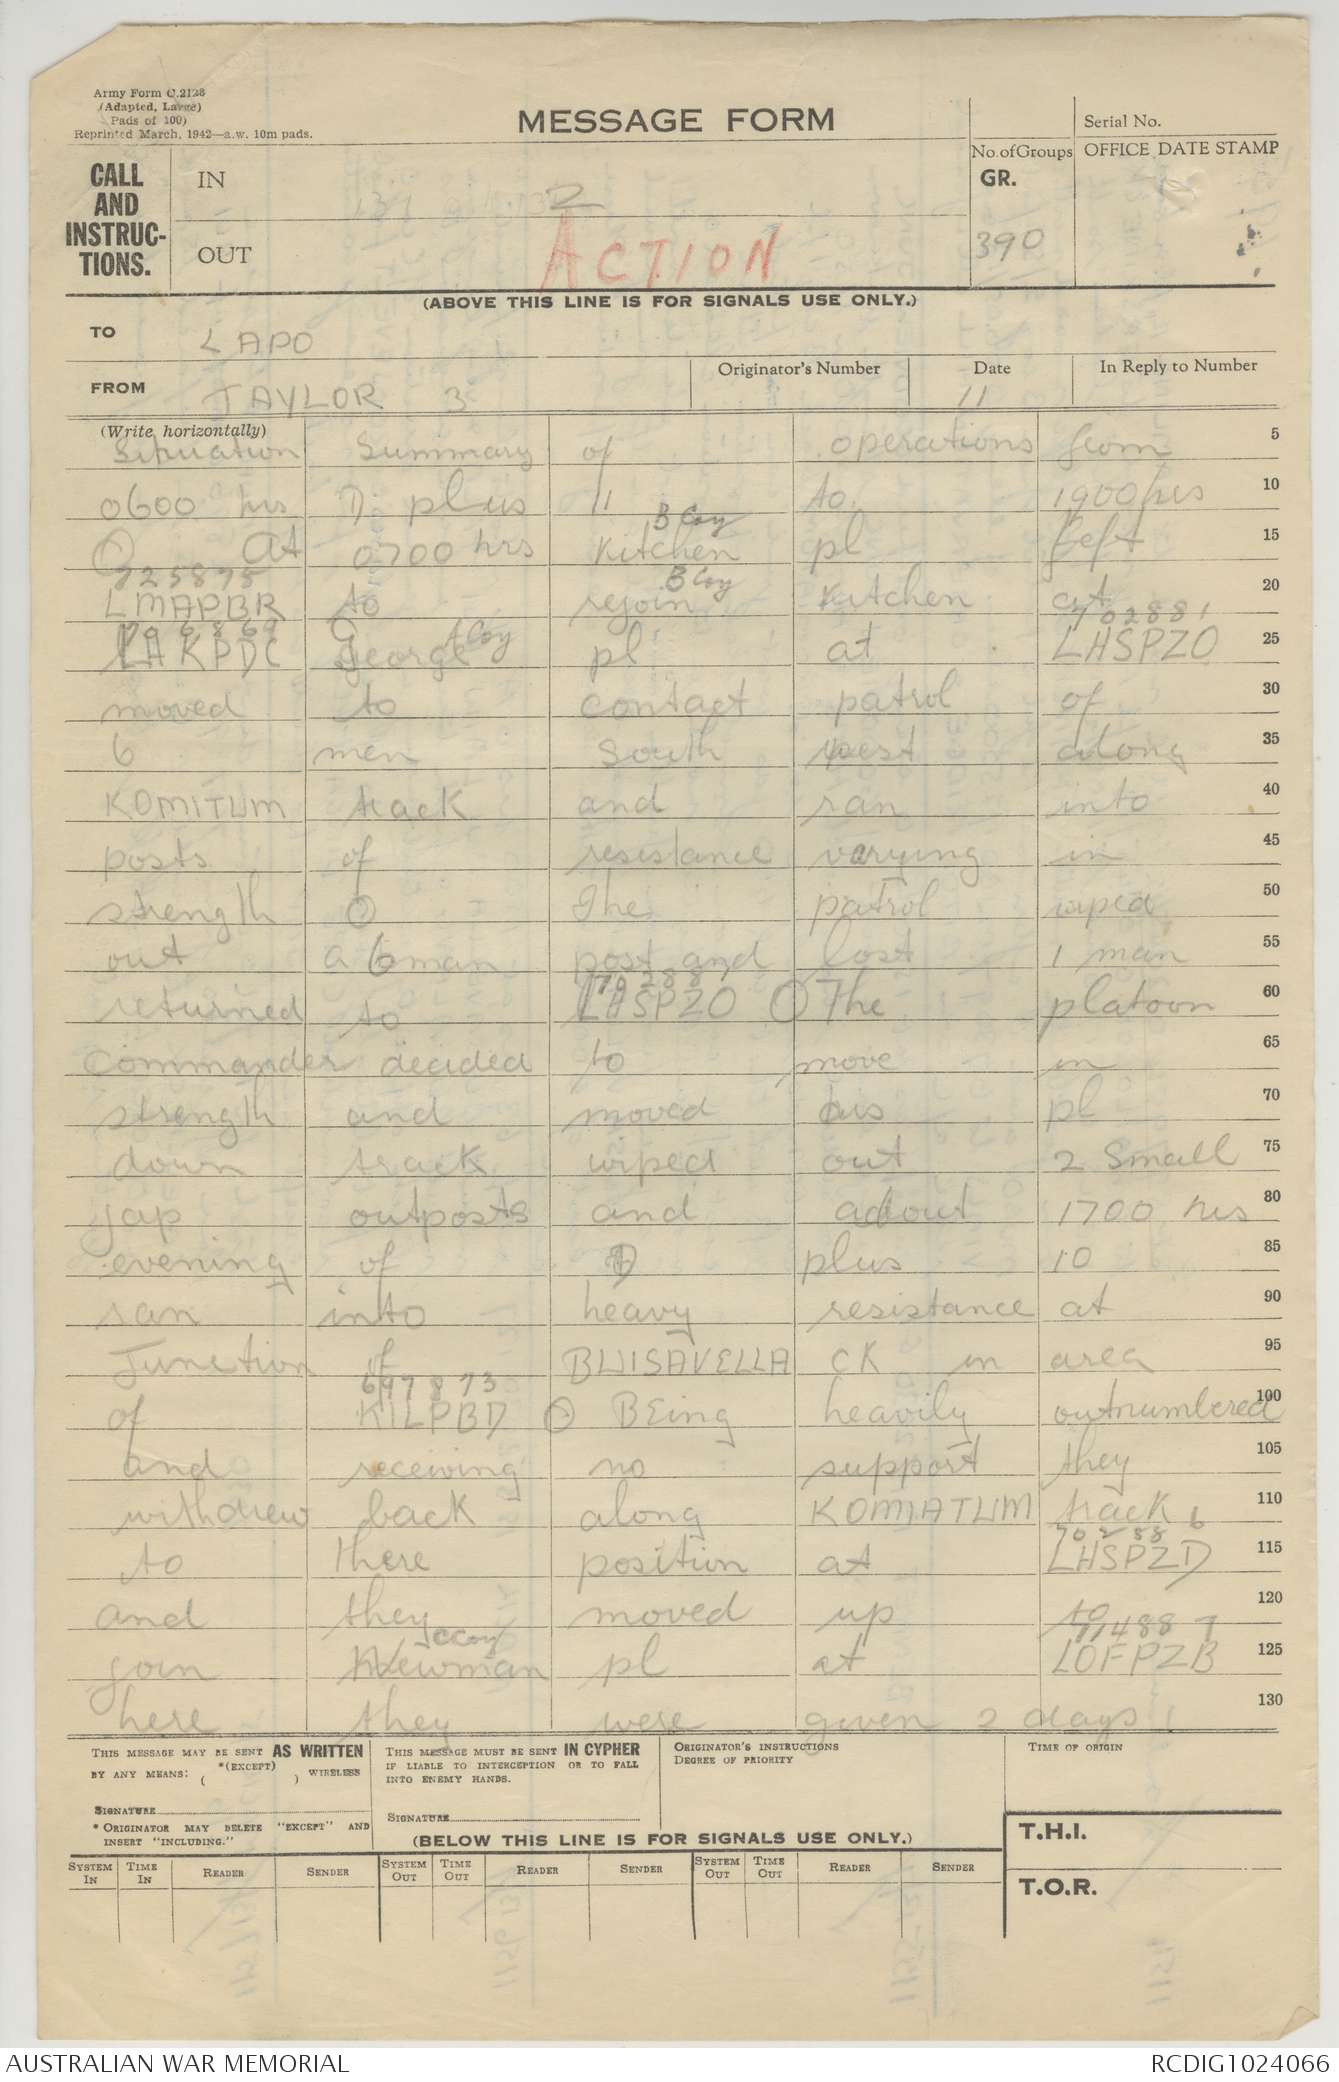 Army Form C.2128
(Adapted, Large)
Pads of 100)
Reprinted March, 1942—a.w. 10m pads.
MESSAGE FORM
Serial No.
No. of Groups
OFFICE DATE STAMP
CALL AND INSTRUC-TIONS.
IN
GR.
2
OUT
ACTION
390
(ABOVE THIS LINE IS FOR SIGNALS USE ONLY.)
TO
LAPO
FROM
TAYLOR 3
Originator's Number
Date
11
In Reply to Number
(Write horizontally)
Situation Summary of operations from 5
0600 hrs D plus 11 to 1900 hrs 10
B Coy
O At 0700 hrs Kitchen pl left 15
725875 B Coy
LMAPBR to rejoin Kitchen at 20
706869 A Coy 702881
LAKPDC George pl at LHSPZO 25
moved to contact patrol of 30
6 men South west along 35
KOMITUM track and ran into 40
posts of resistance varying in 45
strength O The patrol wiped 50
out a 6 man post and lost 1 man 55
returned to LHSPZO O The platoon 60
Commander decided to move in 65
strength and moved his pl 70
down track wiped out 2 Small 75
jap outposts and about 1700 hrs 80
evening of D plus 10 85
ran into heavy resistance at 90
Junction of BUISAVELLA CK in area 95
697873
of KILPBD O BEing heavily outnumbered 100
and receiving no support they 105
withdrew back along KOMIATUM track 110
702886
to there position at LHSPZD 115
and they moved up to 120
C Coy 714887
join Newman pl at LOFPZB 125
here they were given 2 days 130
THIS MESSAGE MAY BE SENT AS WRITTEN
BY ANY MEANS: *(EXCEPT) ( ) WIRELESS
SIGNATURE
* ORIGINATOR MAY DELETE "EXCEPT" AND
INSERT "INCLUDING."
THIS MESSAGE MUST BE SENT IN CYPHER
IF LIABLE TO INTERCEPTION OR TO FALL
INTO ENEMY HANDS.
SIGNATURE
ORIGINATOR'S INSTRUCTIONS
DEGREE OF PRIORITY
TIME OF ORIGIN
(BELOW THIS LINE IS FOR SIGNALS USE ONLY.)
T.H.I.
T.O.R.
SYSTEM IN TIME IN READER SENDER SYSTEM OUT TIME OUT READER SENDER SYSTEM OUT TIME OUT READER SENDER
AUSTRALIAN WAR MEMORIAL
RCDIG1024066